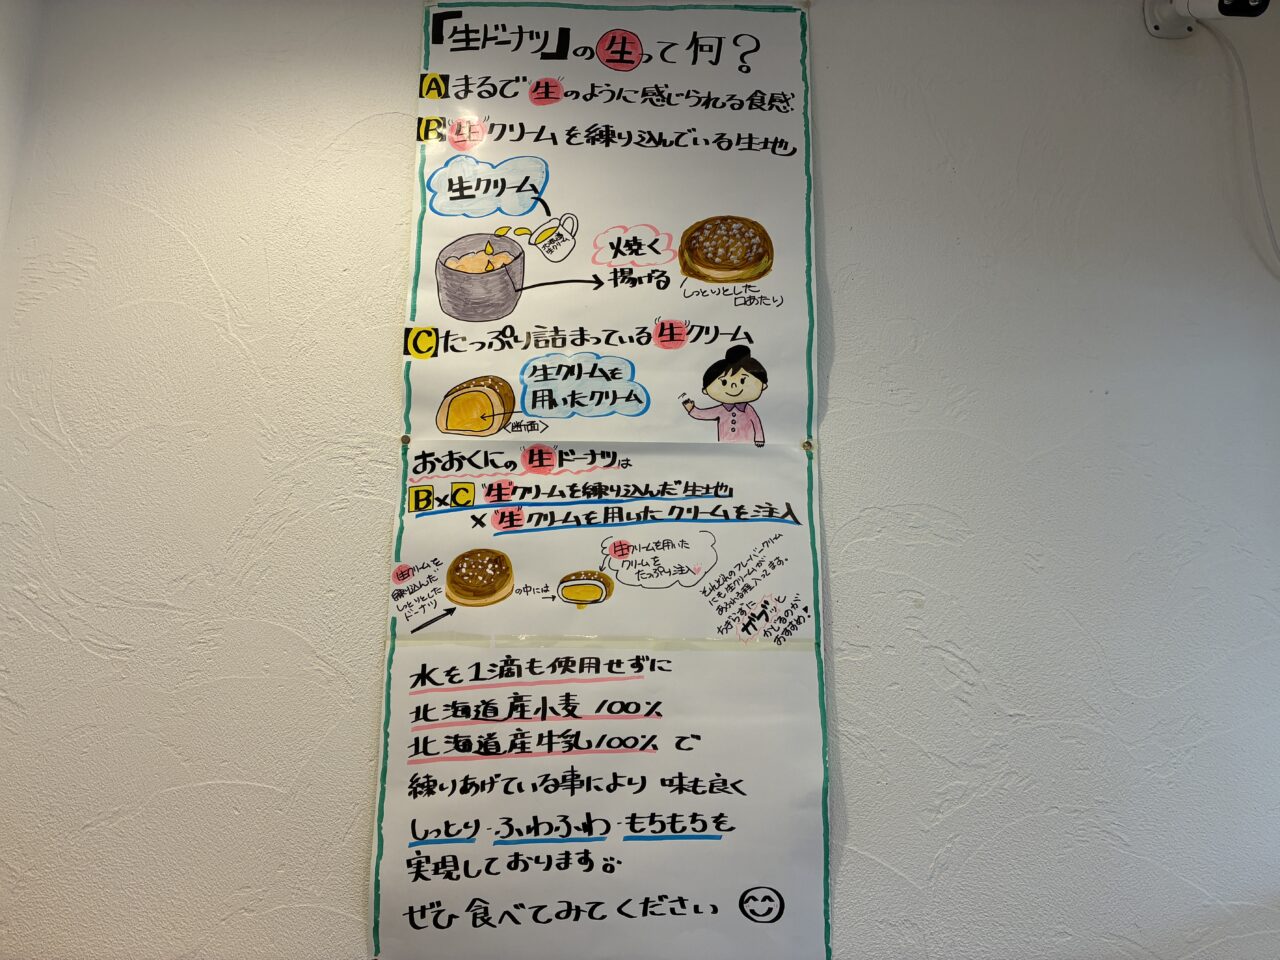 『生ドーナツ』の生って何？
A まるで"生"のように感じられる食感
B "生"クリームを練り込んでいる生地
生クリーム
北海道
生クリーム
焼く
揚げる
しっとりとした
口あたり
C たっぷり詰まっている"生"クリーム
生クリームを
用いたクリーム
<断面>
おおくにの"生"ドーナツは
B×C "生"クリームを練り込んだ生地
×"生"クリームを用いたクリームを注入
生クリームを
練り込んだ
しっとりとした
ドーナツ
の中には
生クリームを用いた
クリームを
たっぷり注入
それぞれのフレーバークリーム
にも生クリームが
あふれる程入ってます。
ちぎらずに
ガブッと
かじるのが
おすすめ！
水を1滴も使用せずに
北海道産小麦100%
北海道産牛乳100%で
練りあげている事により 味も良く
しっとり・ふわふわ・もちもちを
実現しております。
ぜひ食べてみてください